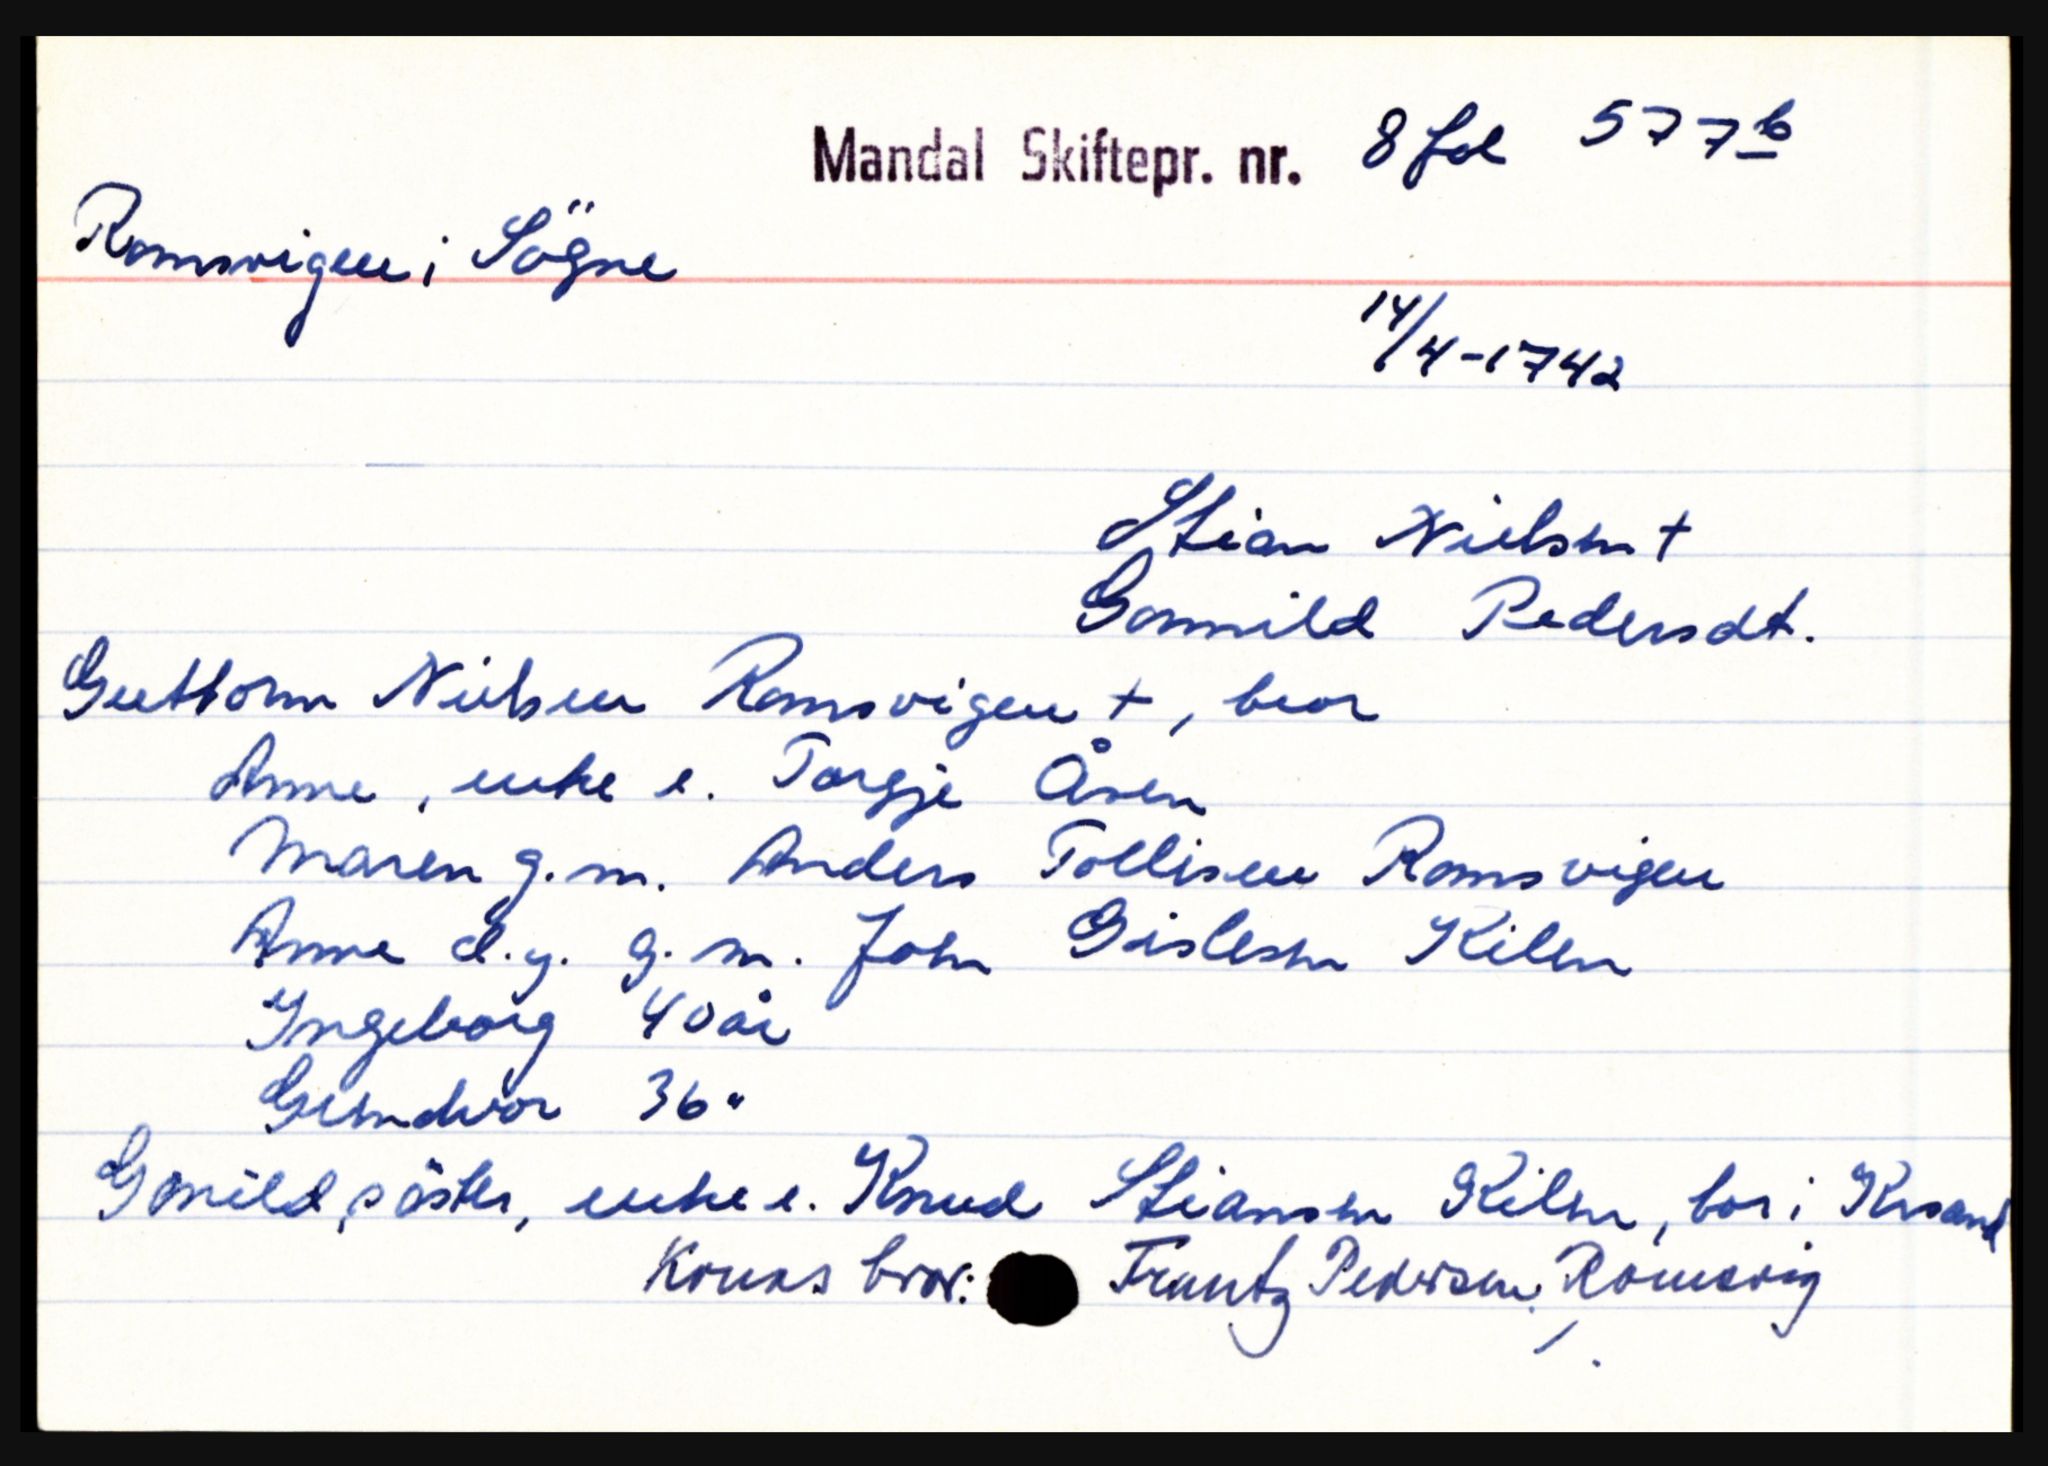 Mandal Skiftepr. nr. 8 fol 577b
Romsvigen i Sögne
14/4-1742
Stian Nielsen +
Gonnild Pedersdt.
Gutborm Nielsen Romsvigen +, bror
Anne, enke e. Torgje Åsen
Maren g.m. Anders Tollisen Romsvigen
Anne d.y. g.m. John Gislesen Kilen
Ingeborg 40 år
Gundvor 36 "
Gonild, söster, enke e. Knud Stiansen Kilen, bor i Krsand
Konas bror: Frantz Pedersen, Romsvig